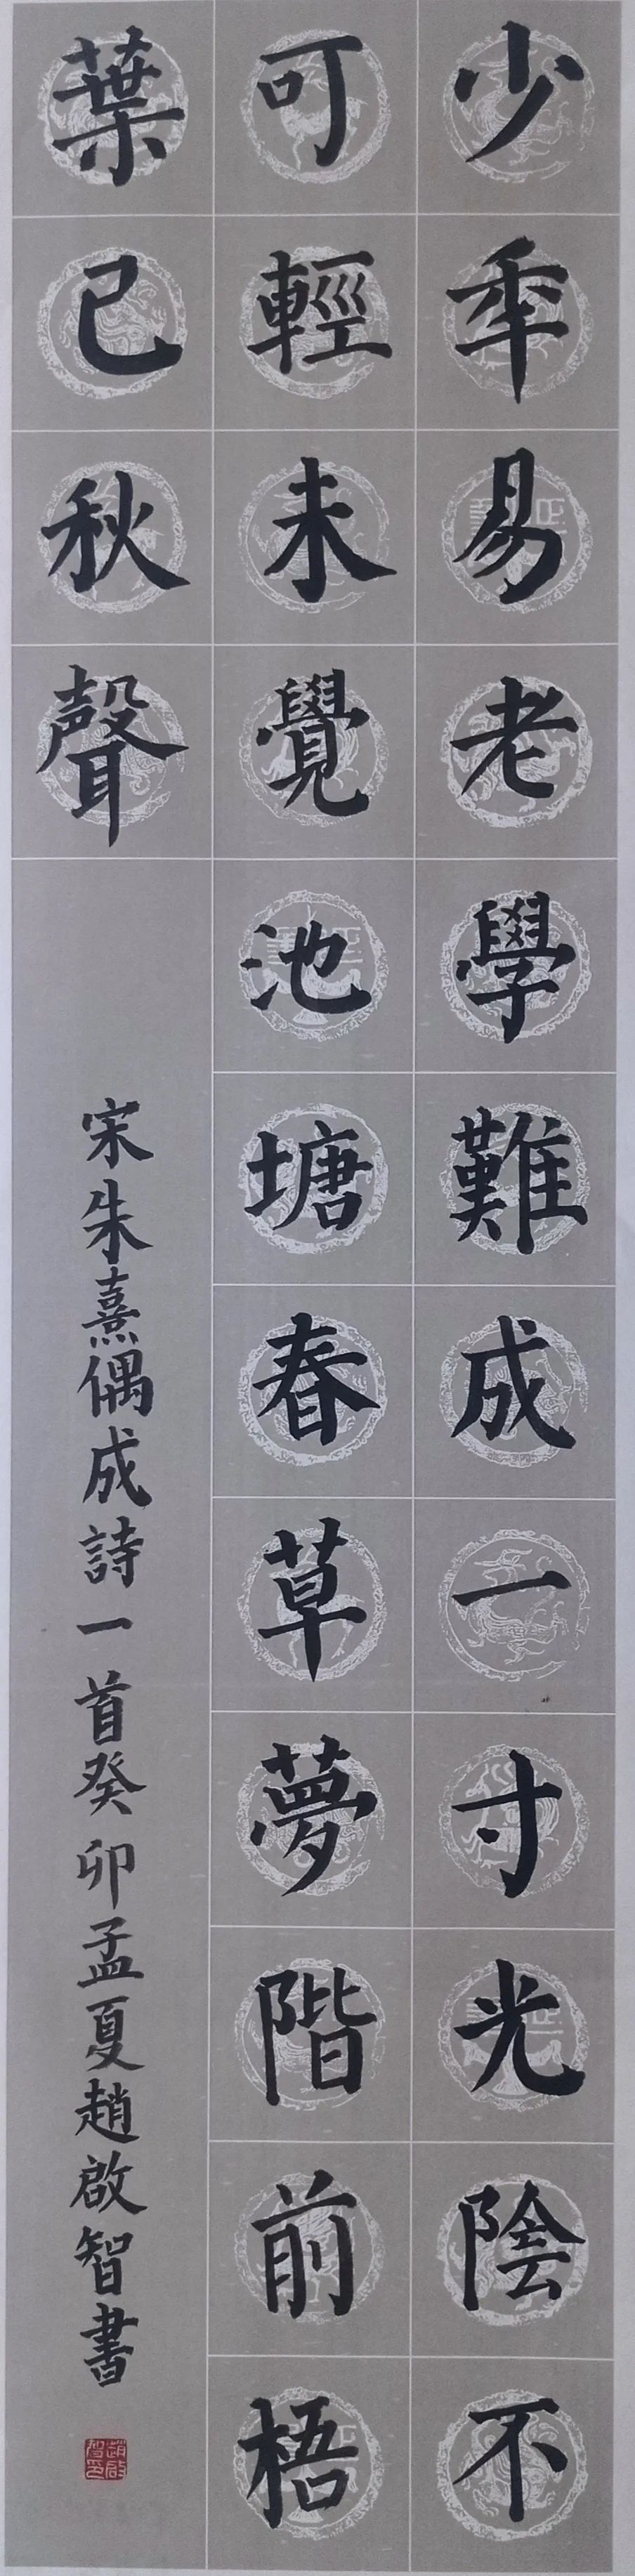 少年易老學難成一寸光陰不
可輕未覺池塘春草夢階前梧
葉已秋聲
宋朱熹偶成詩一首癸卯孟夏趙啟智書
趙啟智印